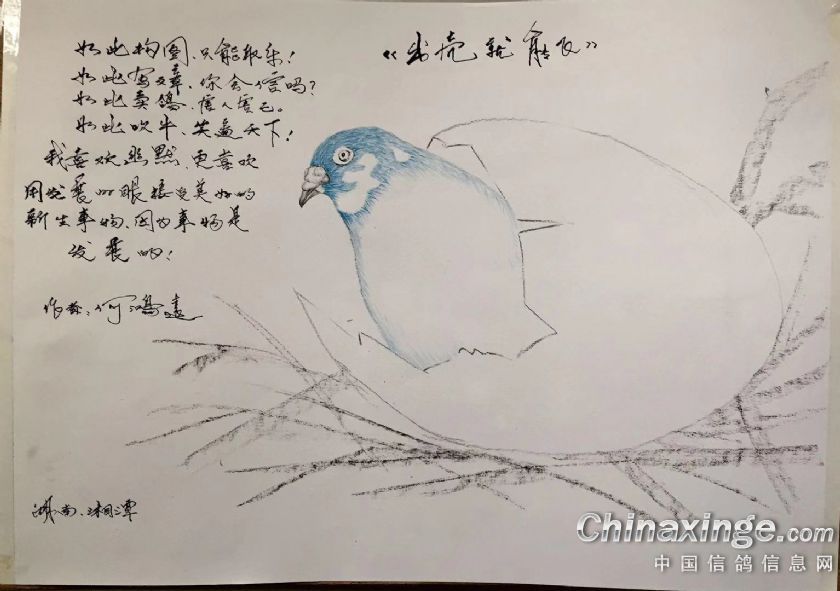 《出壳就能飞》
如此构图、只能取乐！
如此写文章、你会信吗？
如此卖鸽、害人害己。
如此吹牛、笑逼天下！
我喜欢幽默、更喜欢
用发展的眼接受美好的
新生事物、因为事物是
发展的！
作者：何鸿远
湖南、湘潭
Chinaxinge.com
中国信鸽信息网